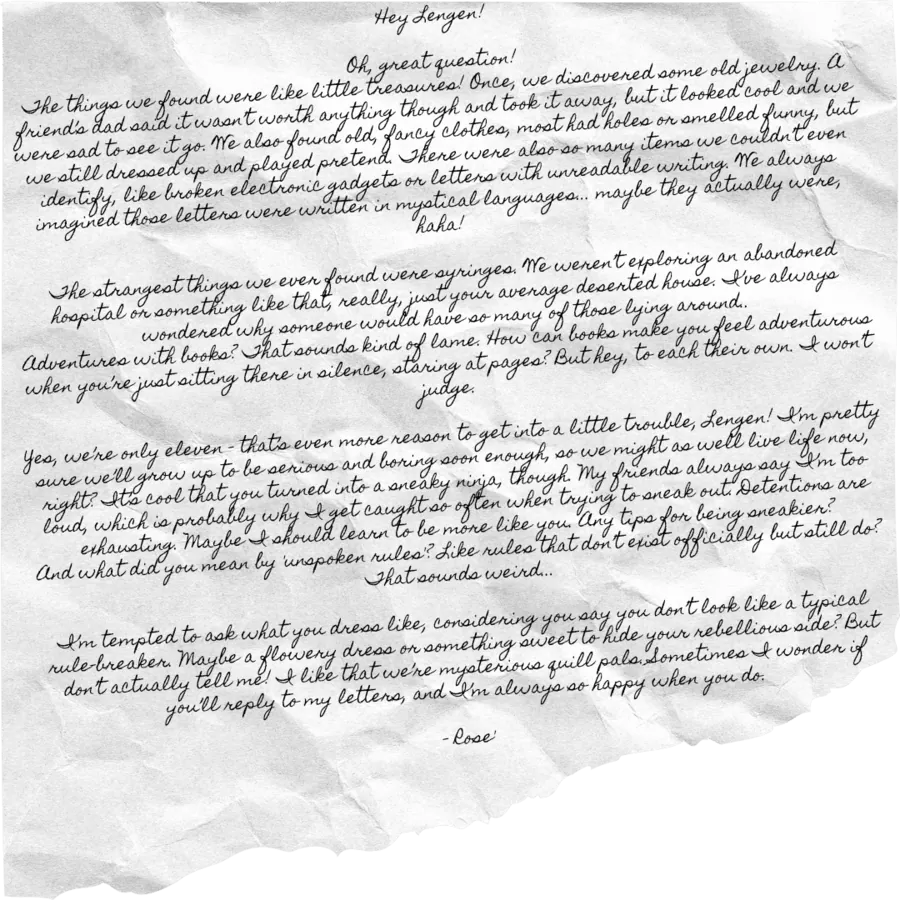 Hey Lengen!
Oh, great question!
The things we found were like little treasures! Once, we discovered some old jewelry. A
friend's dad said it wasn't worth anything though and took it away, but it looked cool and we
were sad to see it go. We also found old, fancy clothes, most had holes or smelled funny, but
we still dressed up and played pretend. There were also so many items we couldn't even
identify, like broken electronic gadgets or letters with unreadable writing. We always
imagined those letters were written in mystical languages... maybe they actually were,
haha!
The strangest things we ever found were syringes. We weren't exploring an abandoned
hospital or something like that, really, just your average deserted house. I've always
wondered why someone would have so many of those lying around..
Adventures with books? That sounds kind of lame. How can books make you feel adventurous
when you're just sitting there in silence, staring at pages? But hey, to each their own. I won't
judge.
Yes, we're only eleven - that's even more reason to get into a little trouble, Lengen! I'm pretty
sure we'll grow up to be serious and boring soon enough, so we might as well live life now,
right? It's cool that you turned into a sneaky ninja, though. My friends always say I'm too
loud, which is probably why I get caught so often when trying to sneak out. Detentions are
exhausting. Maybe I should learn to be more like you. Any tips for being sneakier?
And what did you mean by 'unspoken rules'? Like rules that don't exist officially but still do?
That sounds weird...
I'm tempted to ask what you dress like, considering you say you don't look like a typical
rule-breaker. Maybe a flowery dress or something sweet to hide your rebellious side? But
don't actually tell me! I like that we're mysterious quill pals. Sometimes I wonder if
you'll reply to my letters, and I'm always so happy when you do.
- Rose'